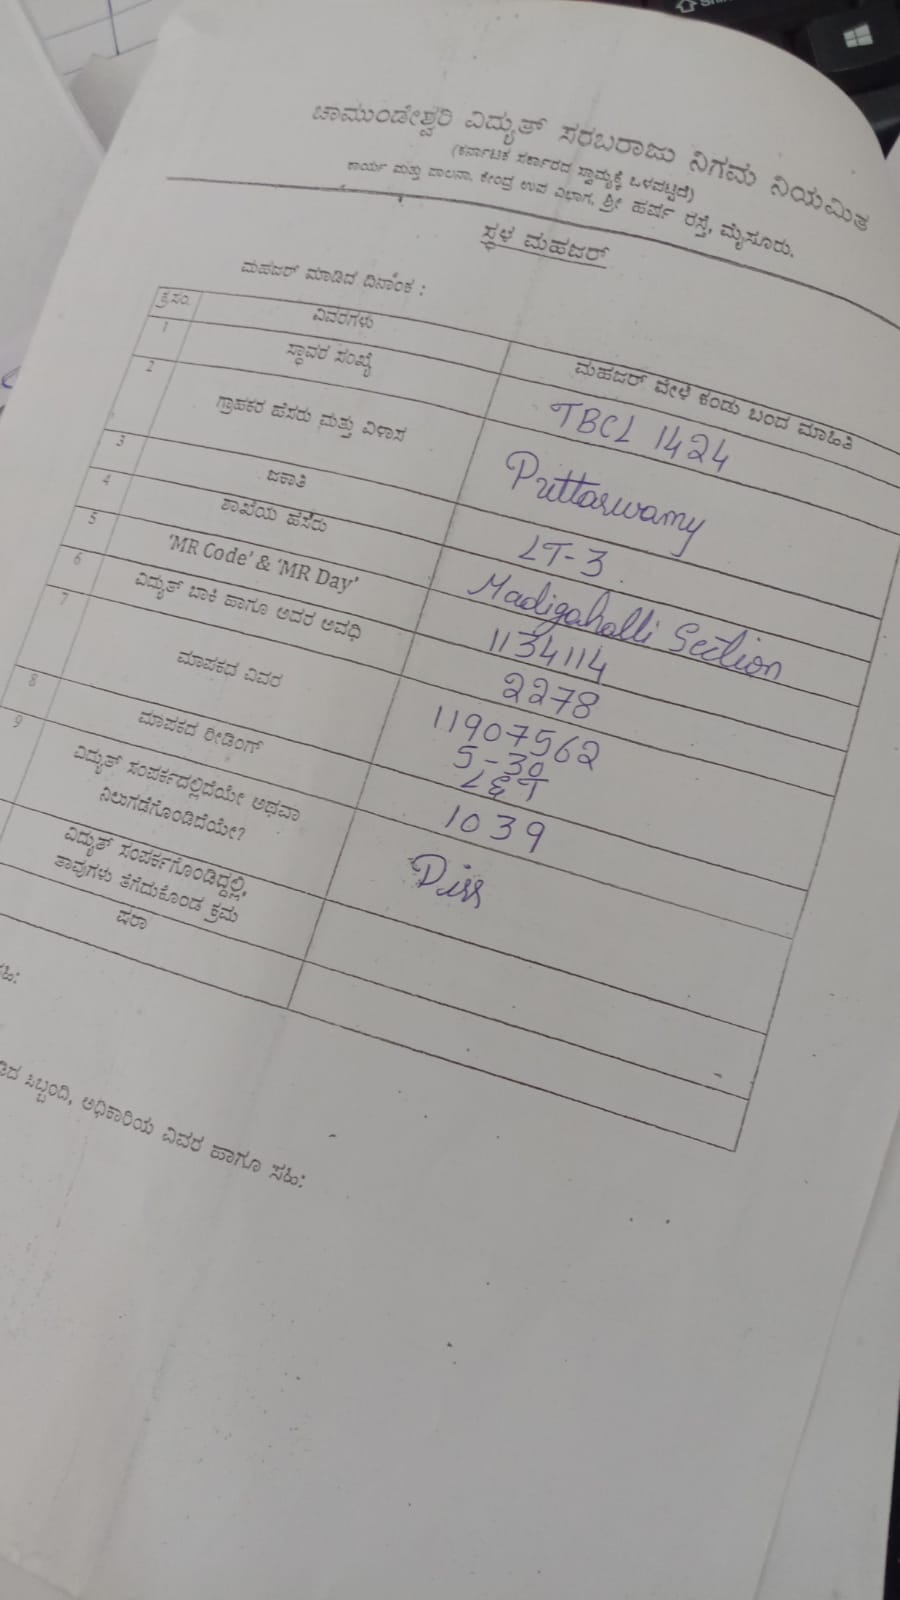 ಚಾಮುಂಡೇಶ್ವರಿ ವಿದ್ಯುತ್ ಸರಬರಾಜು ನಿಗಮ ನಿಯಮಿತ
(ಕರ್ನಾಟಕ ಸರ್ಕಾರದ ಸ್ವಾಮ್ಯಕ್ಕೆ ಒಳಪಟ್ಟಿದೆ)
ಕಾರ್ಯ ಮತ್ತು ಪಾಲನಾ, ಕೇಂದ್ರ ಉಪ ವಿಭಾಗ, ಶ್ರೀ ಹರ್ಷ ರಸ್ತೆ, ಮೈಸೂರು.
ಸ್ಥಳ ಮಹಜರ್
ಮಹಜರ್ ಮಾಡಿದ ದಿನಾಂಕ :
ಕ್ರ.ಸಂ. ವಿವರಗಳು ಮಹಜರ್ ವೇಳೆ ಕಂಡು ಬಂದ ಮಾಹಿತಿ
1 ಸ್ಥಾವರ ಸಂಖ್ಯೆ TBCL 1424
2 ಗ್ರಾಹಕರ ಹೆಸರು ಮತ್ತು ವಿಳಾಸ Puttaswamy
3 ಜಕಾತಿ LT-3
4 ಶಾಖೆಯ ಹೆಸರು Madigahalli Section
5 'MR Code' & 'MR Day' 1134114
6 ವಿದ್ಯುತ್ ಬಾಕಿ ಹಾಗೂ ಅದರ ಅವಧಿ 2278
7 ಮಾಪಕದ ವಿವರ 11907562
5-30
L&T
8 ಮಾಪಕದ ರೀಡಿಂಗ್ 1039
9 ವಿದ್ಯುತ್ ಸಂಪರ್ಕದಲ್ಲಿದೆಯೇ ಅಥವಾ Diss
ನಿಲುಗಡೆಗೊಂಡಿದೆಯೇ?
ವಿದ್ಯುತ್ ಸಂಪರ್ಕಗೊಂಡಿದ್ದಲ್ಲಿ,
ತಾವುಗಳು ತೆಗೆದುಕೊಂಡ ಕ್ರಮ
ಷರಾ
ಸಿಬ್ಬಂದಿ, ಅಧಿಕಾರಿಯ ವಿವರ ಹಾಗೂ ಸಹಿ: